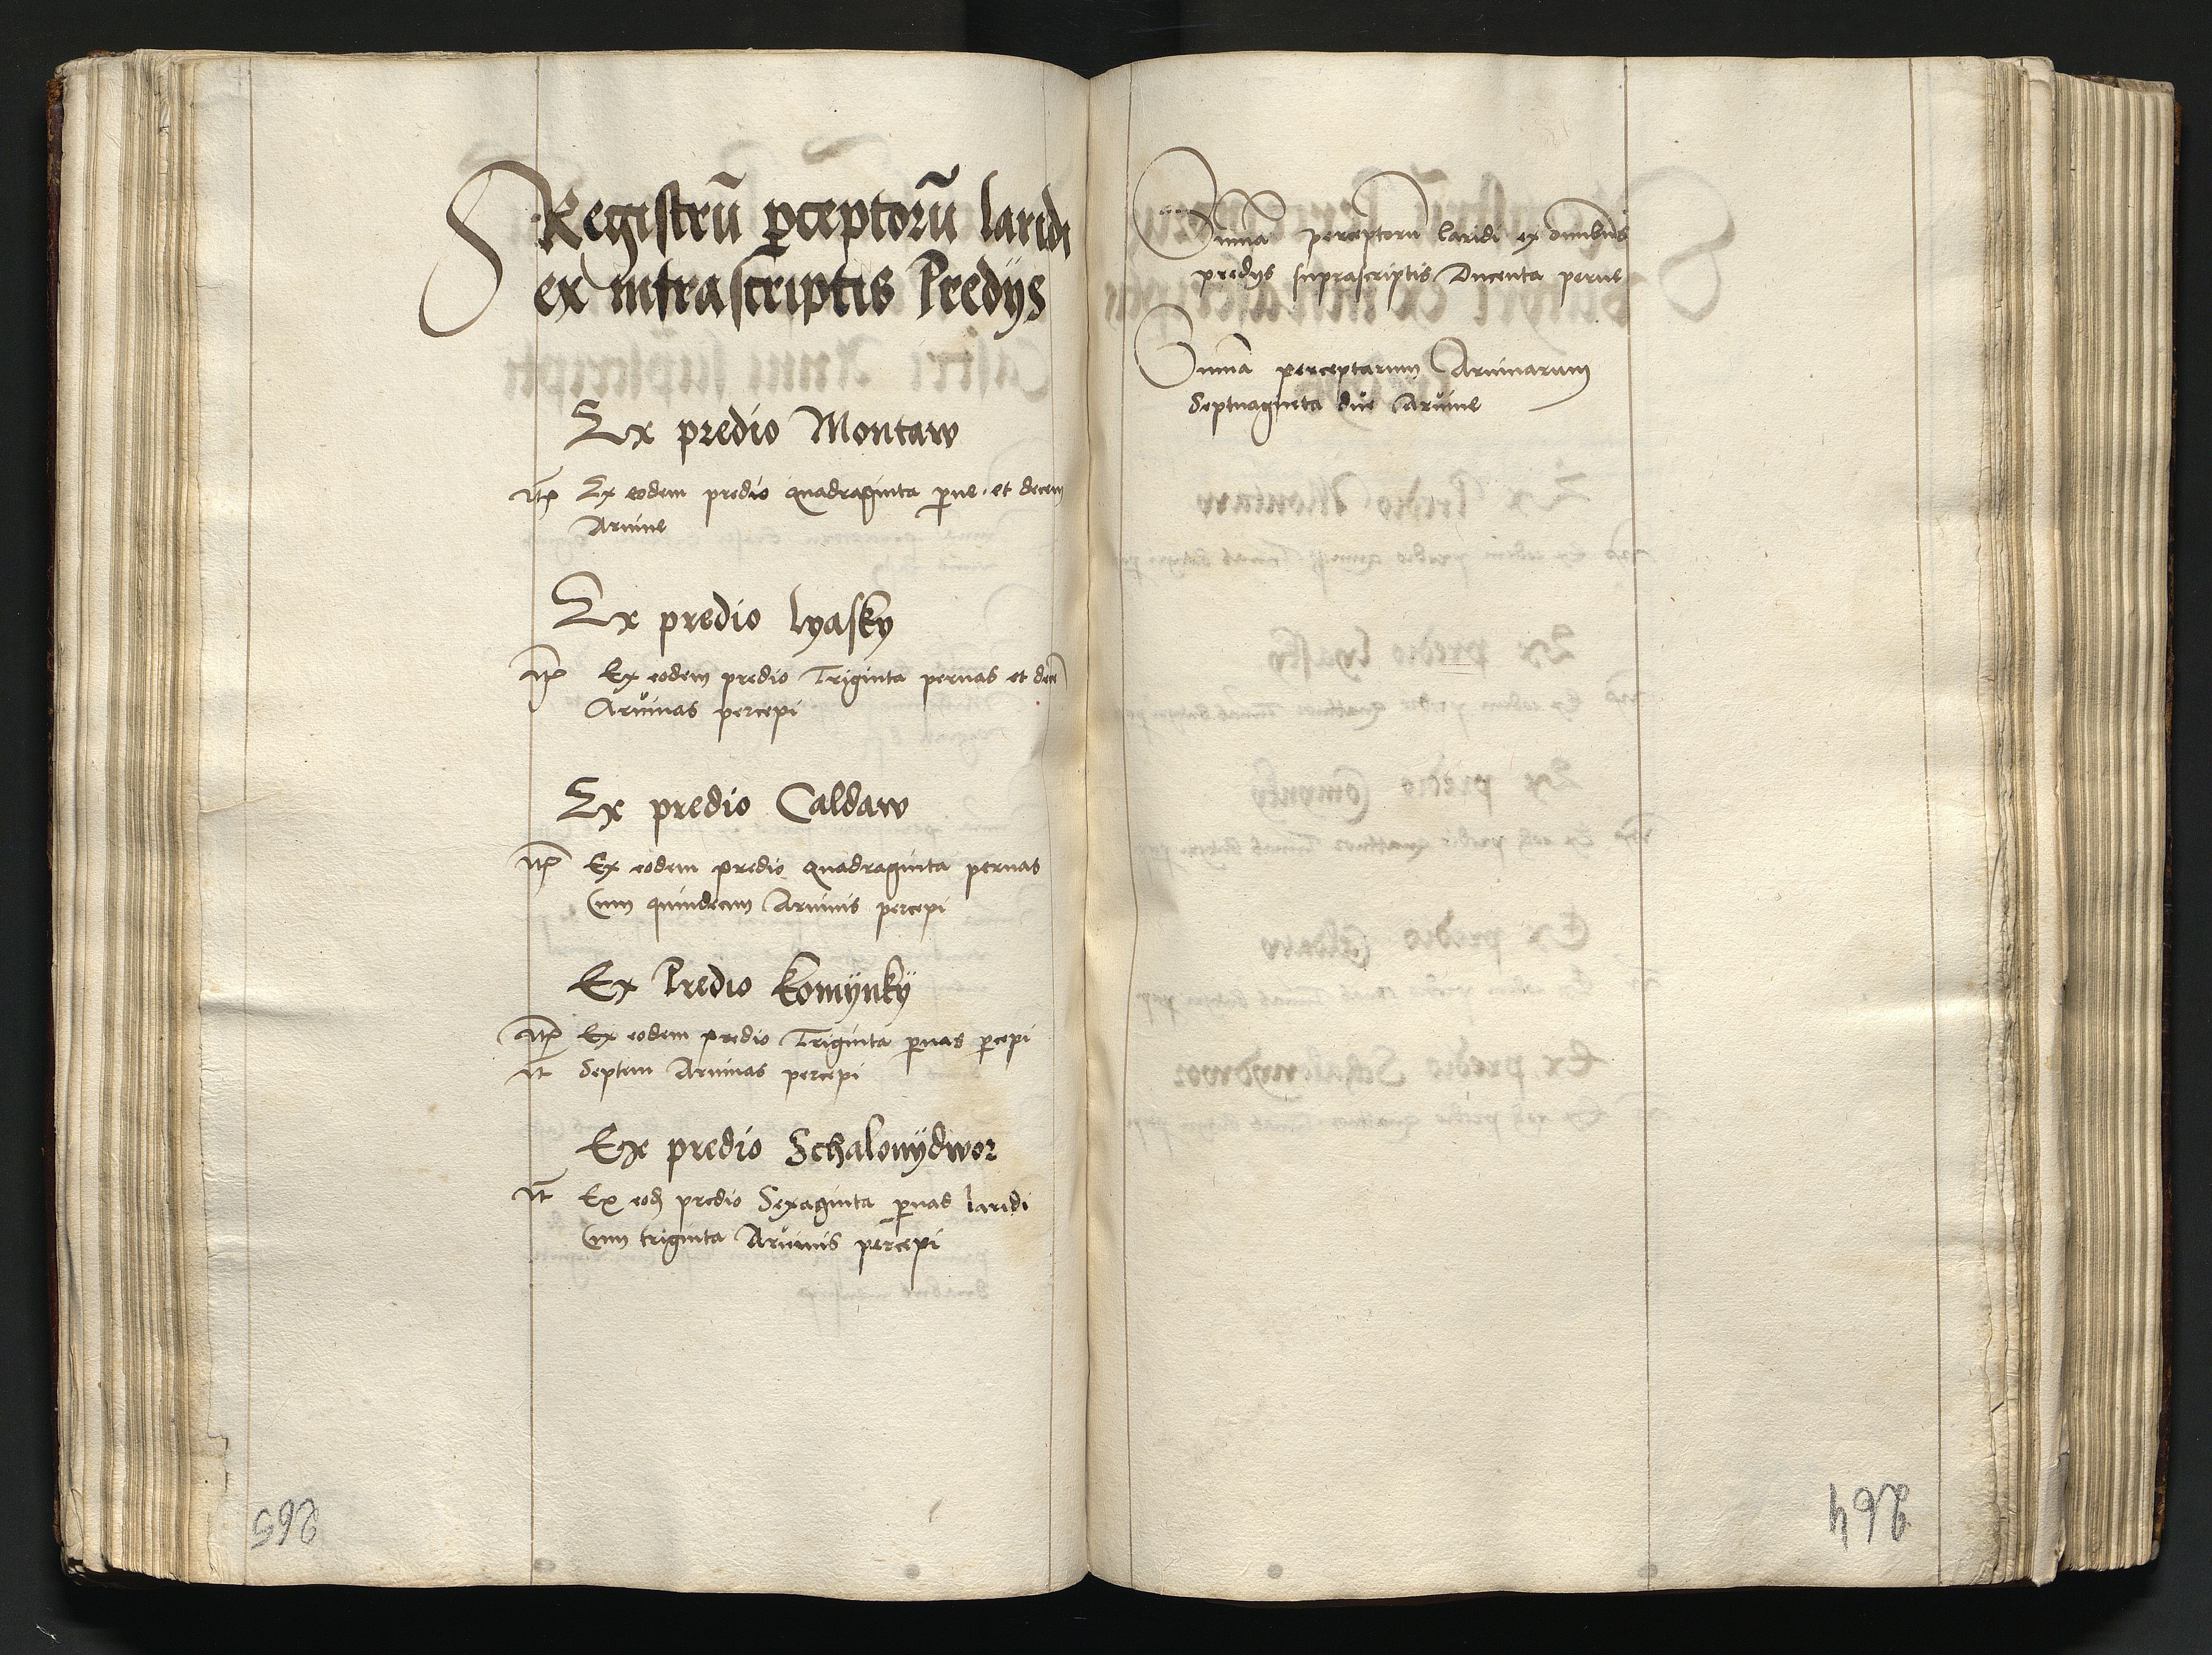 Registrū p̱ceptorū laridi
ex infrascriptis Predÿs
Ex predio Montaw
Itē Ex eodem predio quadraginta p̱ne et decem
Aruine
Ex predio lyasky
Itē Ex eodem predio Triginta pernas et decē
Aruinas percepi
Ex predio Caldaw
Itē Ex eodem predio quadraginta pernas
Cum quindecim Aruinis percepi
Ex Predio komÿnkÿ
Itē Ex eodem predio Triginta p̱nas p̱cepi
It Septem Aruinas percepi
Ex predio Schalonÿdwor
It Ex eodē predio Sexaginta p̱nas laridi
Cum triginta Aruinis percepi
265
Summa perceptorū laridi ex omnibus
predÿs suprascriptis Ducenta perne
Summa perceptarum Aruinarum
Septuaginta due Aruine
264